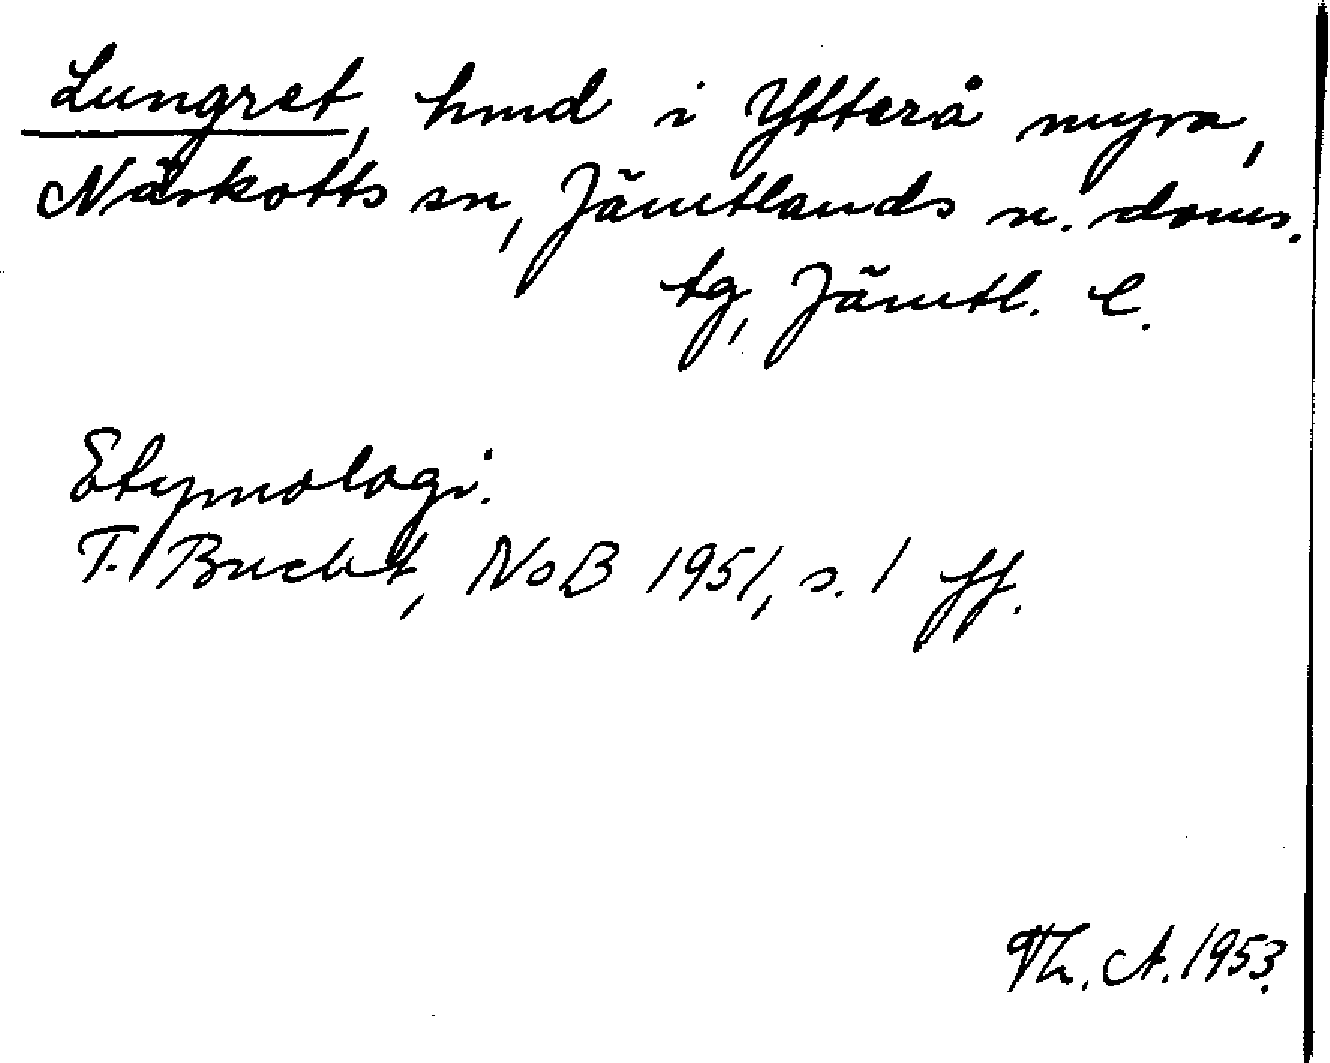 Lungret, hmd i Ytterå myra,
Näskotts sn, Jämtlands n. doms.
tg, Jämtl. l.
Etymologi.
T. Bucht, NoB 1951, s. 1 ff.
Th. A. 1953.